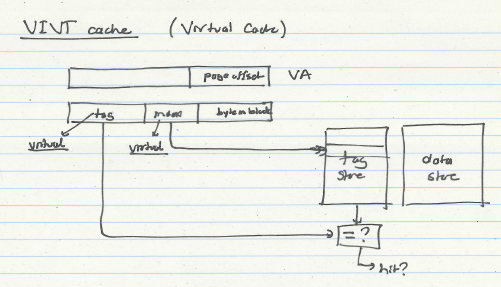 VIVT cache (Virtual Cache)
page offset VA
tag index byte in block
virtual virtual
tag store
data store
= ?
hit?